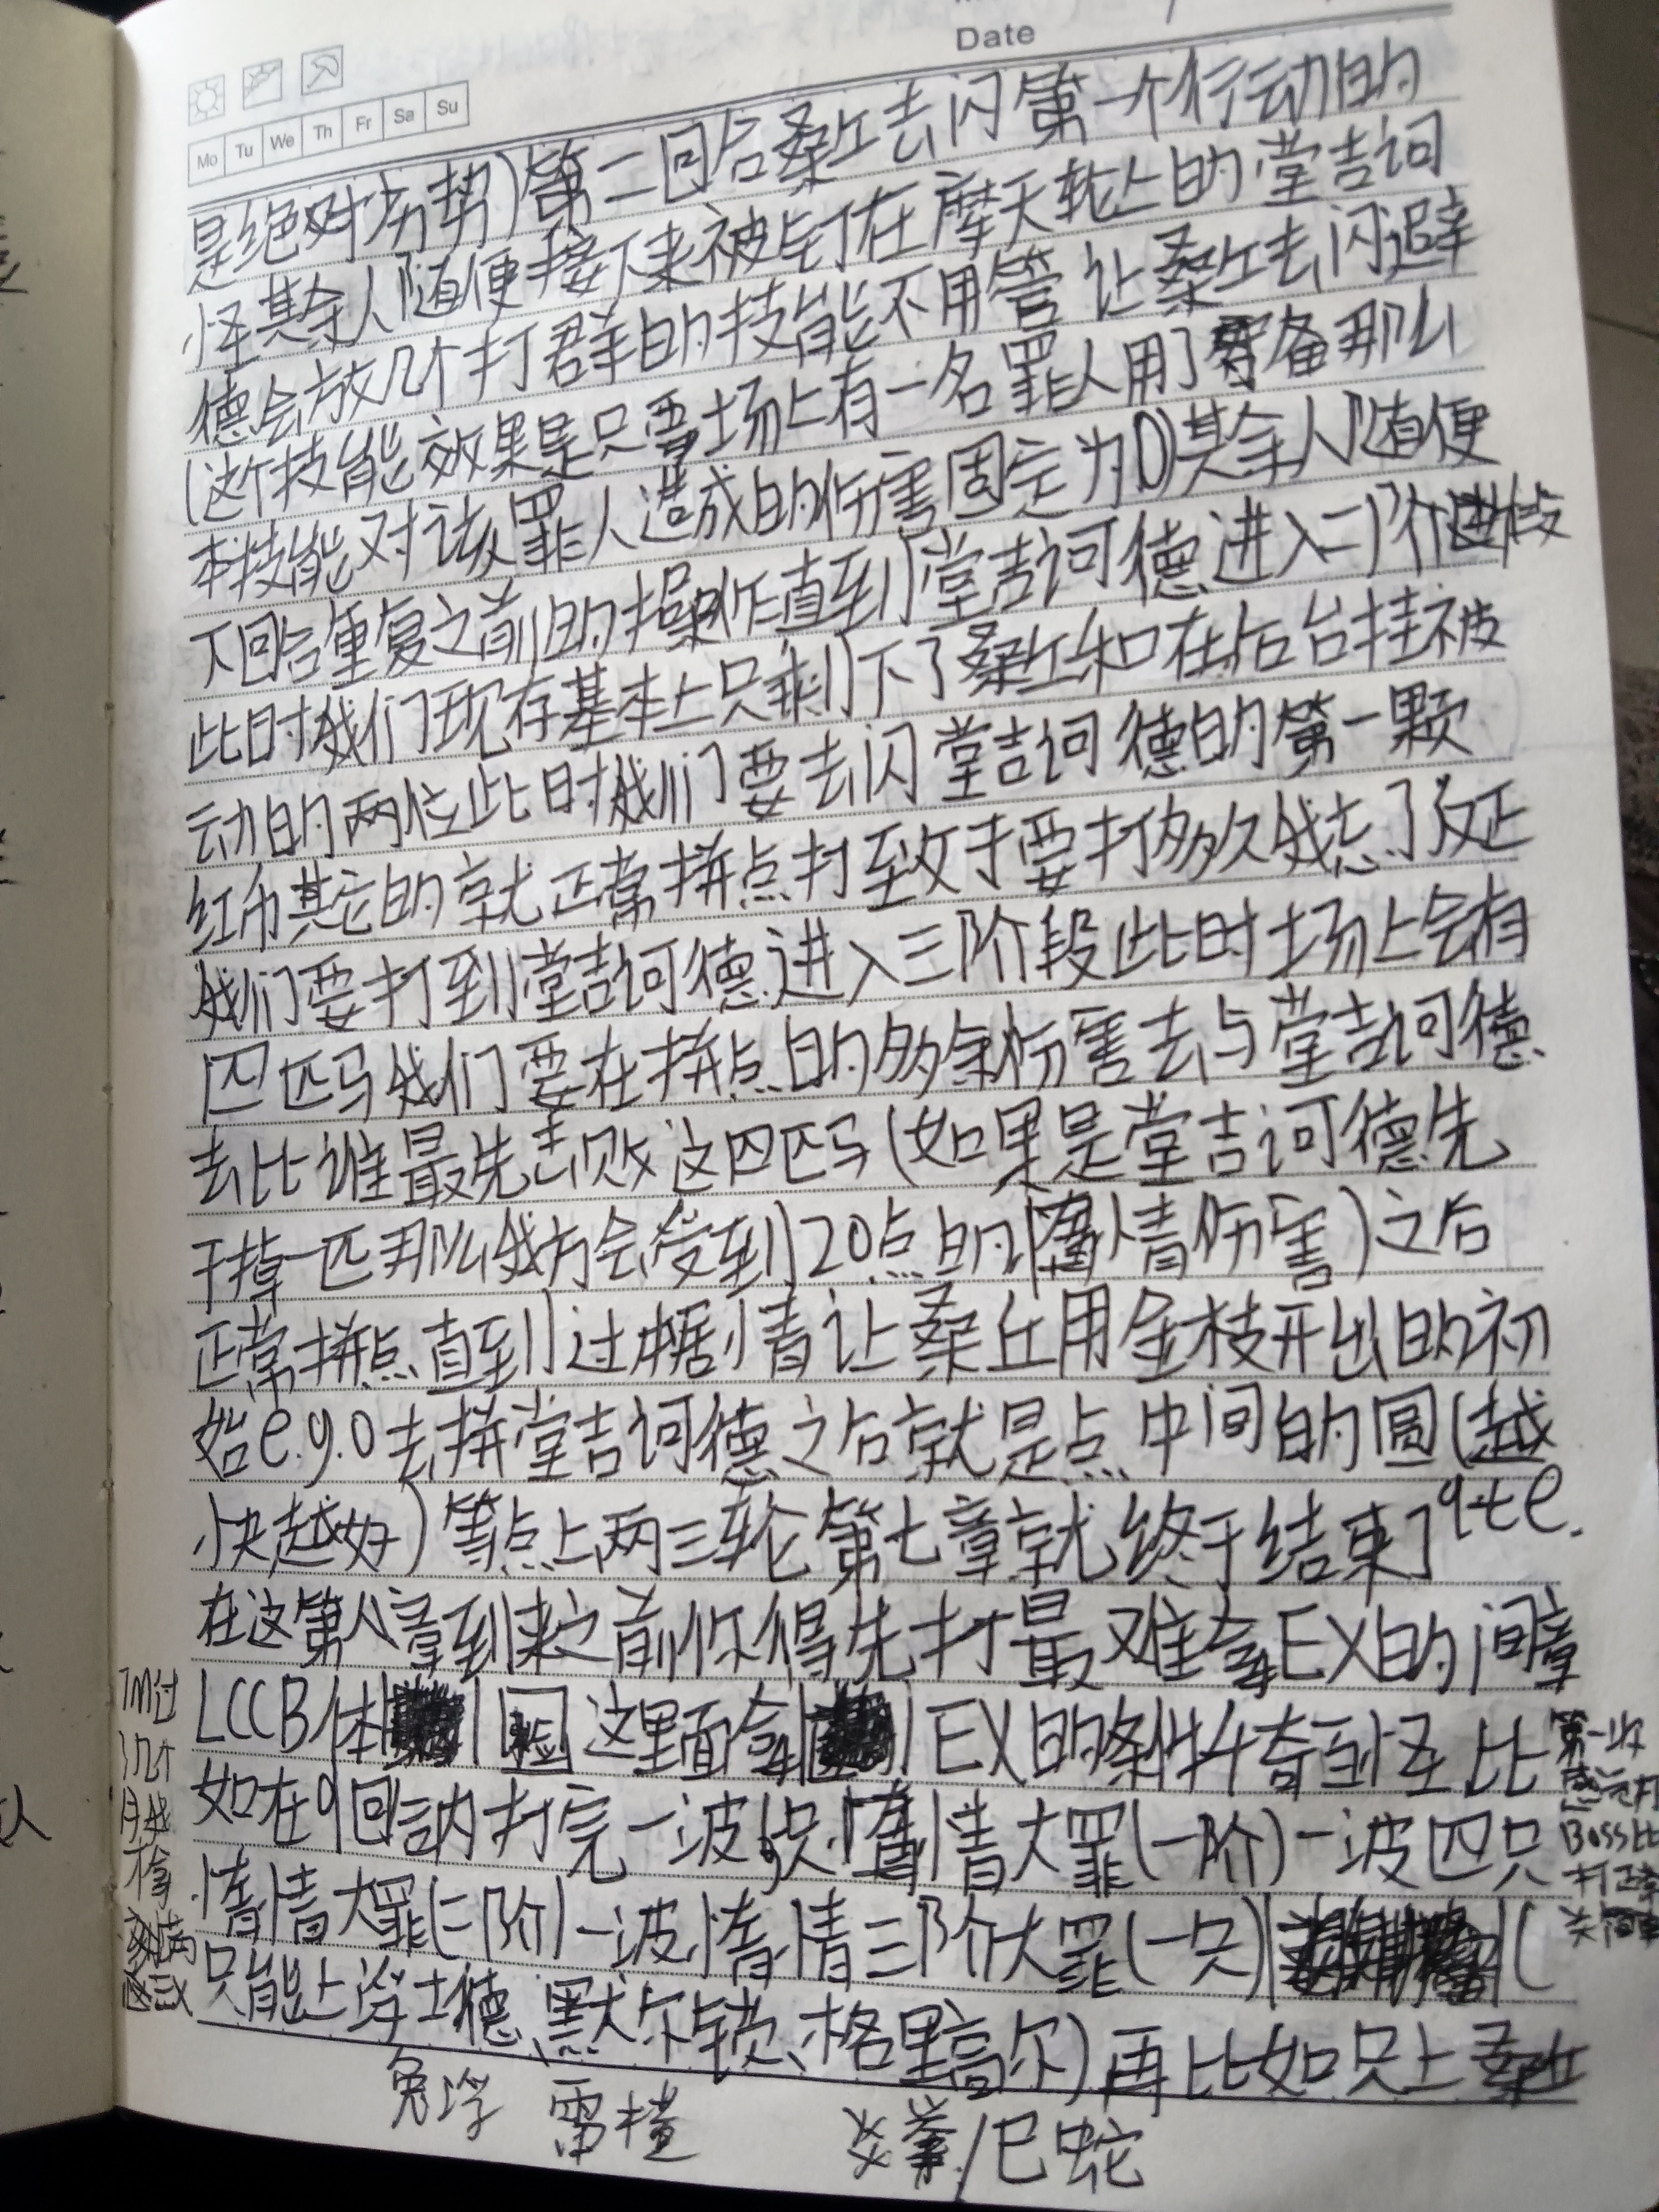 Date
Mo Tu We Th Fr Sa Su
是绝对劣势)第二回合桑丘去闪第一个行动的
怪其余人随便接下来被钉在摩天轮上的堂吉诃
德会放几个打群的技能不用管让桑丘去闪避
(这个技能效果是只要场上有一名罪人用了守备那么
本技能对该罪人造成的伤害固定为0)其余人随便
下回合重复之前的操作直到堂吉诃德进入二阶段
此时我们现存基本上只剩下了桑丘和在后台挂被
动的两位此时我们要去闪堂吉诃德的第一颗
红币其它的就正常拼点打至于要打多久我忘了反正
我们要打到堂吉诃德进入三阶段此时场上会有
四匹马我们要在拼点的多余伤害去与堂吉诃德
去比谁最先击败这四匹马(如果是堂吉诃德先
干掉一匹那么我方会受到20点的惰情伤害)之后
正常拼点直到过本剧情让桑丘用金枝开出的初
始e.g.o去拼堂吉诃德之后就是点中间的圆(越
快越好)等点上两三轮第七章就终于结束了qte.
在这第人拿到来之前你得先打最难拿EX的间章
LCCB体验园这里面拿EX的条件千奇百怪比
如在9回合内打完一波 只惰情大罪(一阶)一波四只
惰情大罪(二阶)一波惰情三阶大罪(一只)(
只能上浮士德、默尔索、格里高尔)再比如只上桑丘
兔浮 雷横 拳/巳蛇
过
几个
月我
第一次
打
Boss比
打正章
关简单